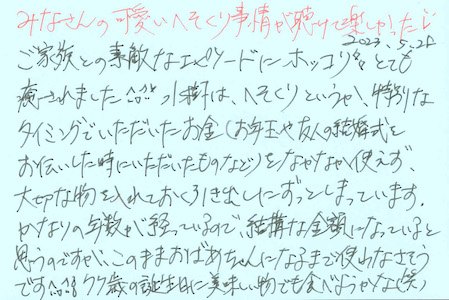 みなさんの可愛いへそくり事情が聴けて楽しかったし
2023.5.21
ご家族との素敵なエピソードにホッコリ♡とても
癒されました^o^!! 小樹は、へそくりというか、特別な
タイミングでいただいたお金(お年玉や友人の結婚式を
お伝いした時にいただいたものなど)をなかなか使えず、
大切な物を入れておく引き出しにずっとしまっています。
かなりの年数が経っているので、結構な金額になっていると
思うのですが、このままおばあちゃんになるまで使わなさそう
です^o^!! 77歳の誕生日に美味しい物でも食べようかな(笑)